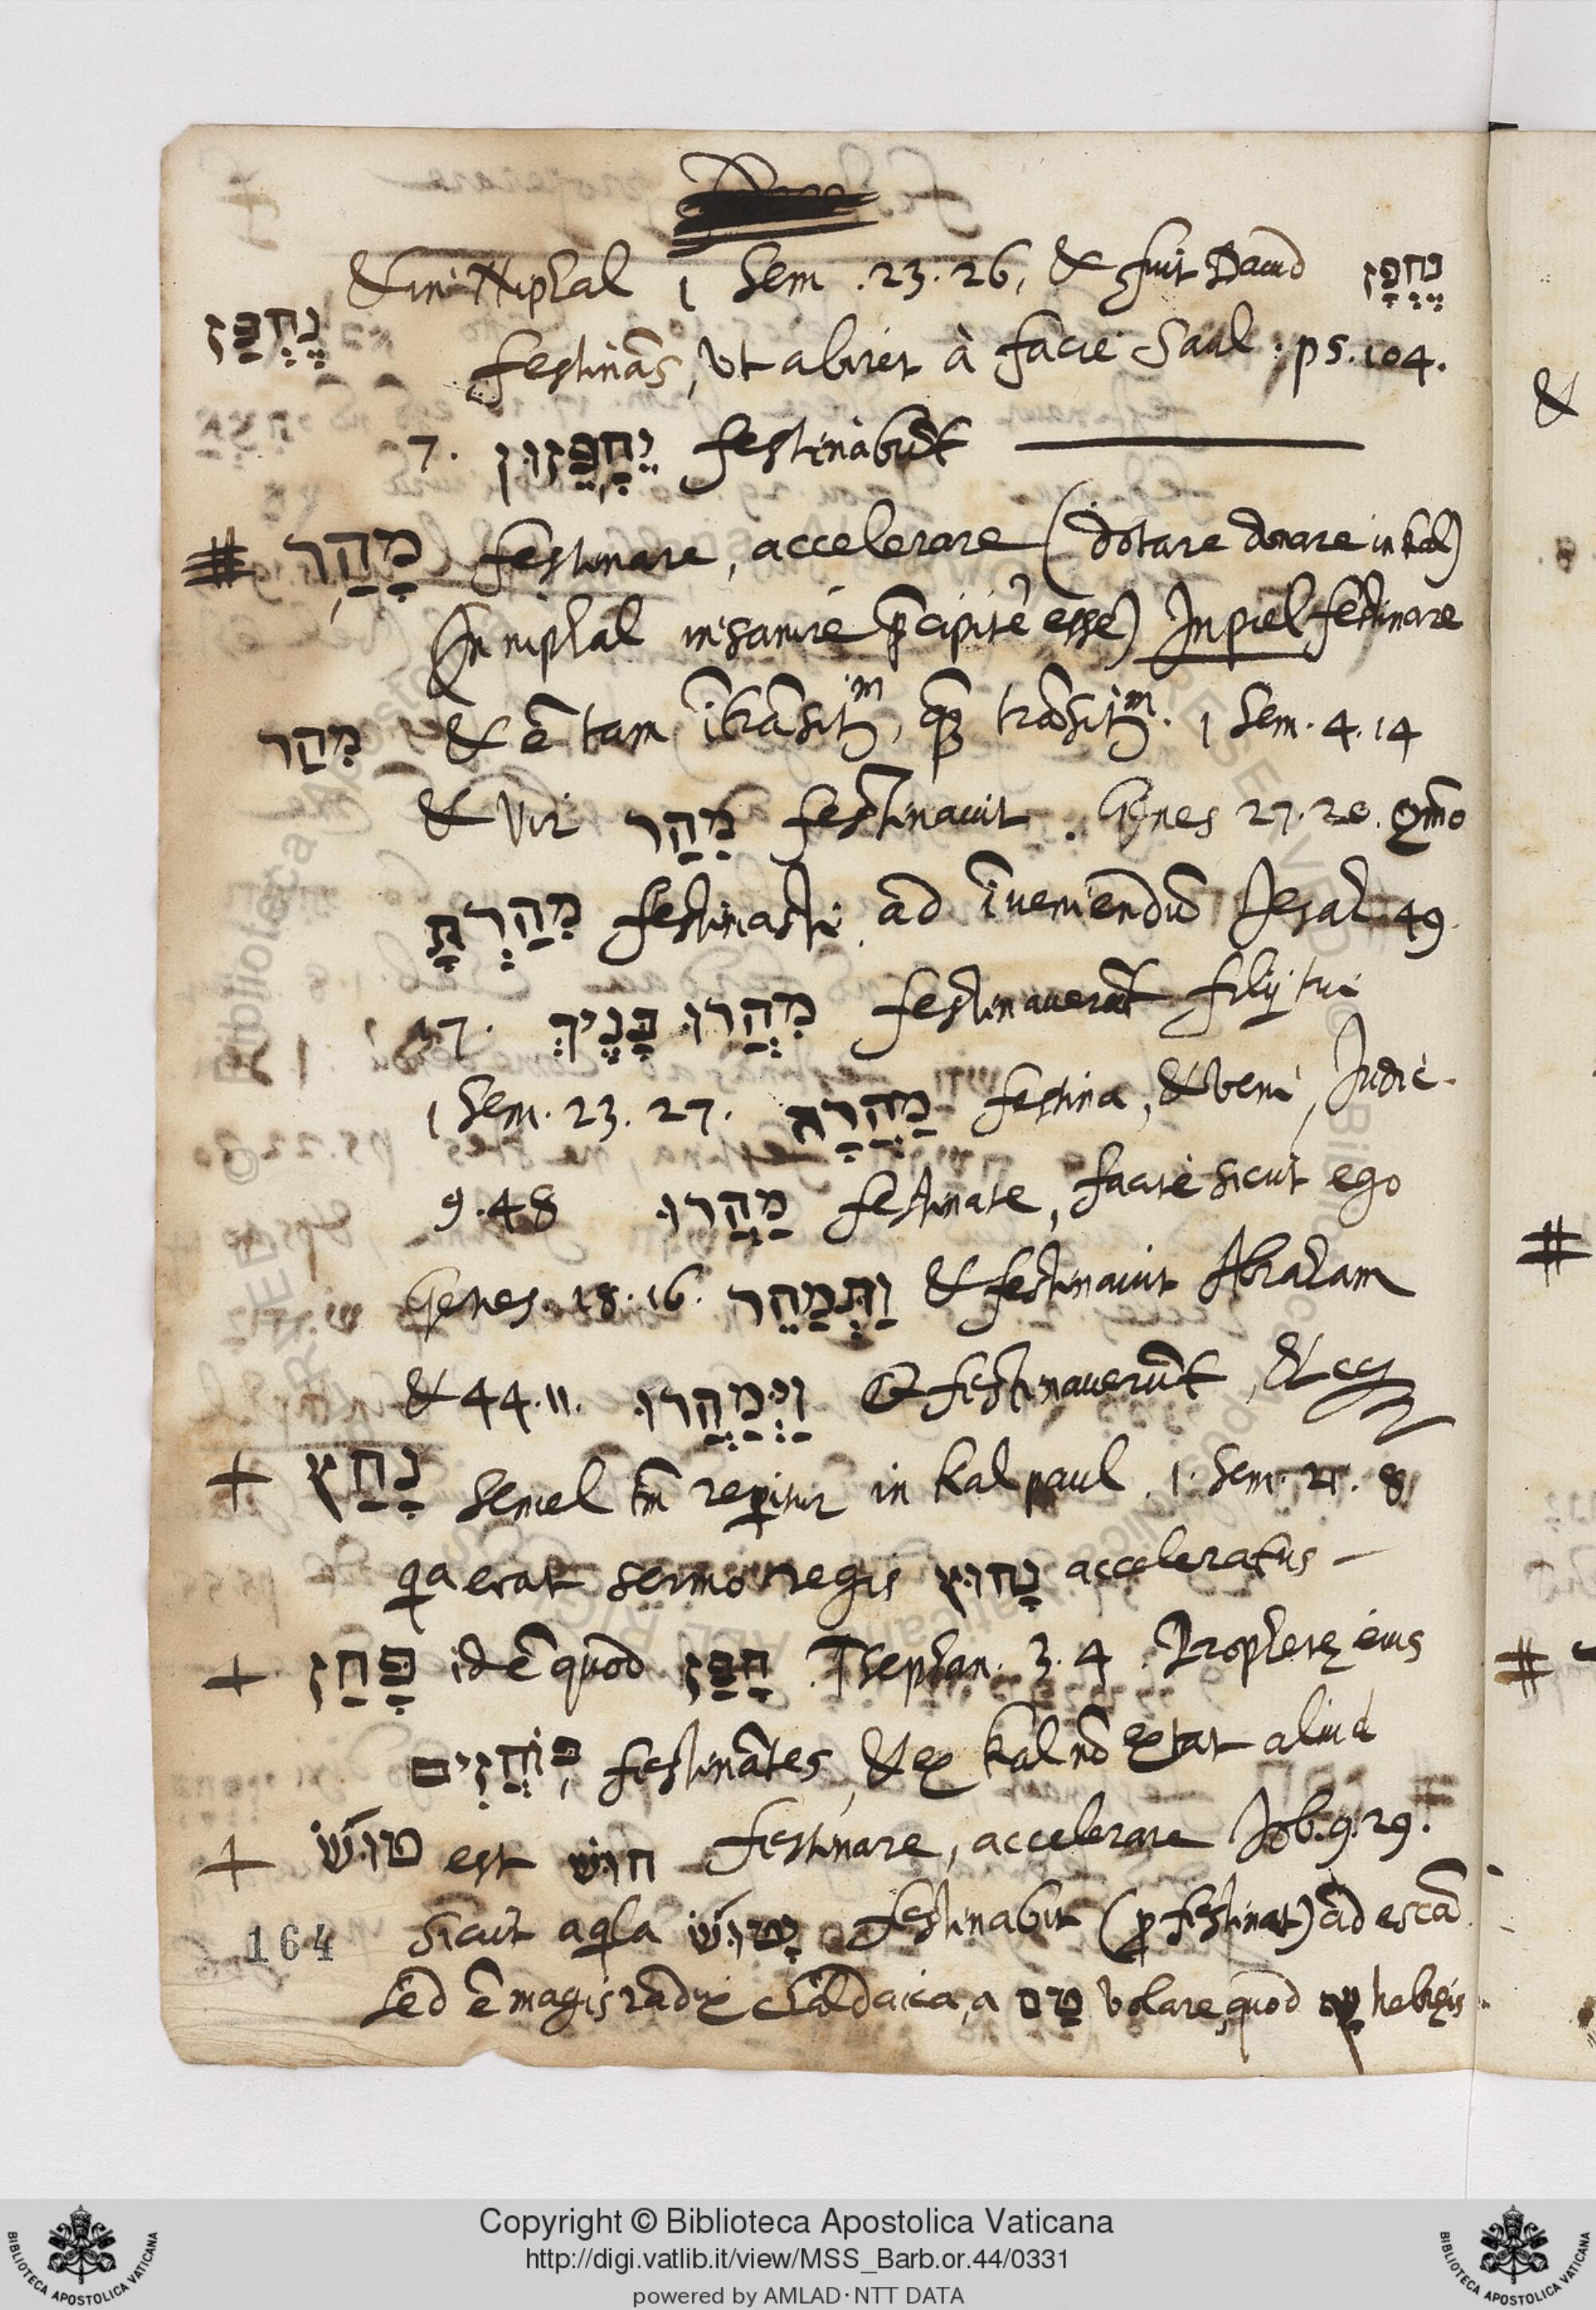 & in Niphal 1 Sem. 23. 26, & fuit Dauid נֶחְפָּז
נֶחְפַּז
festinãs, vt abiret à facie Saul: ps. 104.
7. יֵחָפֵזוּן festinabũt
# מָהַר festinare, accelerare (dotare donare in kal)
(In niphal insanire p̃cipitẽ esse) In piel festinare
מִהַר & ẽ tam ĩtrãsitm, quã trãsitm. 1 Sem. 4. 14
& vir מִהַר festinauit. Genes 27. 20. qm̃o
מִהַרְתָּ festinasti ad ĩueniendũ Jesah 49.
17. מִהֲרוּ בָּנָיִךְ festinauerũt filij tui
1 Sem. 23. 27. מַהֲרָה festina, & veni, Judic.
9. 48 מַהֲרוּ festinate, facite sicut ego
Genes. 18. 16. וַתְּמַהֵר & festinauit Abraham
& 44. 11. וַיְמַהֲרוּ & festinauerũt, &c
+ נָחַץ semel tm̃ reperitur in kal paul. 1. Sem. 21. 8
qa erat sermo regis נָחוּץ acceleratus —
+ פָּחַז idẽ quod חָפַז. Tsephan. 3. 4. Prophetę eius
פּוֹחֲזִים festinãtes, & ex kal nõ extat aliud
+ טוּשׂ est חוּשׁ festinare, accelerare Job. 9. 29.
sicut aqla יָטוּשׂ festinabit (p festinat) ad escã
sed ẽ magis radix chaldaica, a טָס volare, quod hebręis
164
Copyright © Biblioteca Apostolica Vaticana
http://digi.vatlib.it/view/MSS_Barb.or.44/0331
powered by AMLAD · NTT DATA
BIBLIOTECA APOSTOLICA VATICANA
BIBLIOTECA APOSTOLICA VATICANA